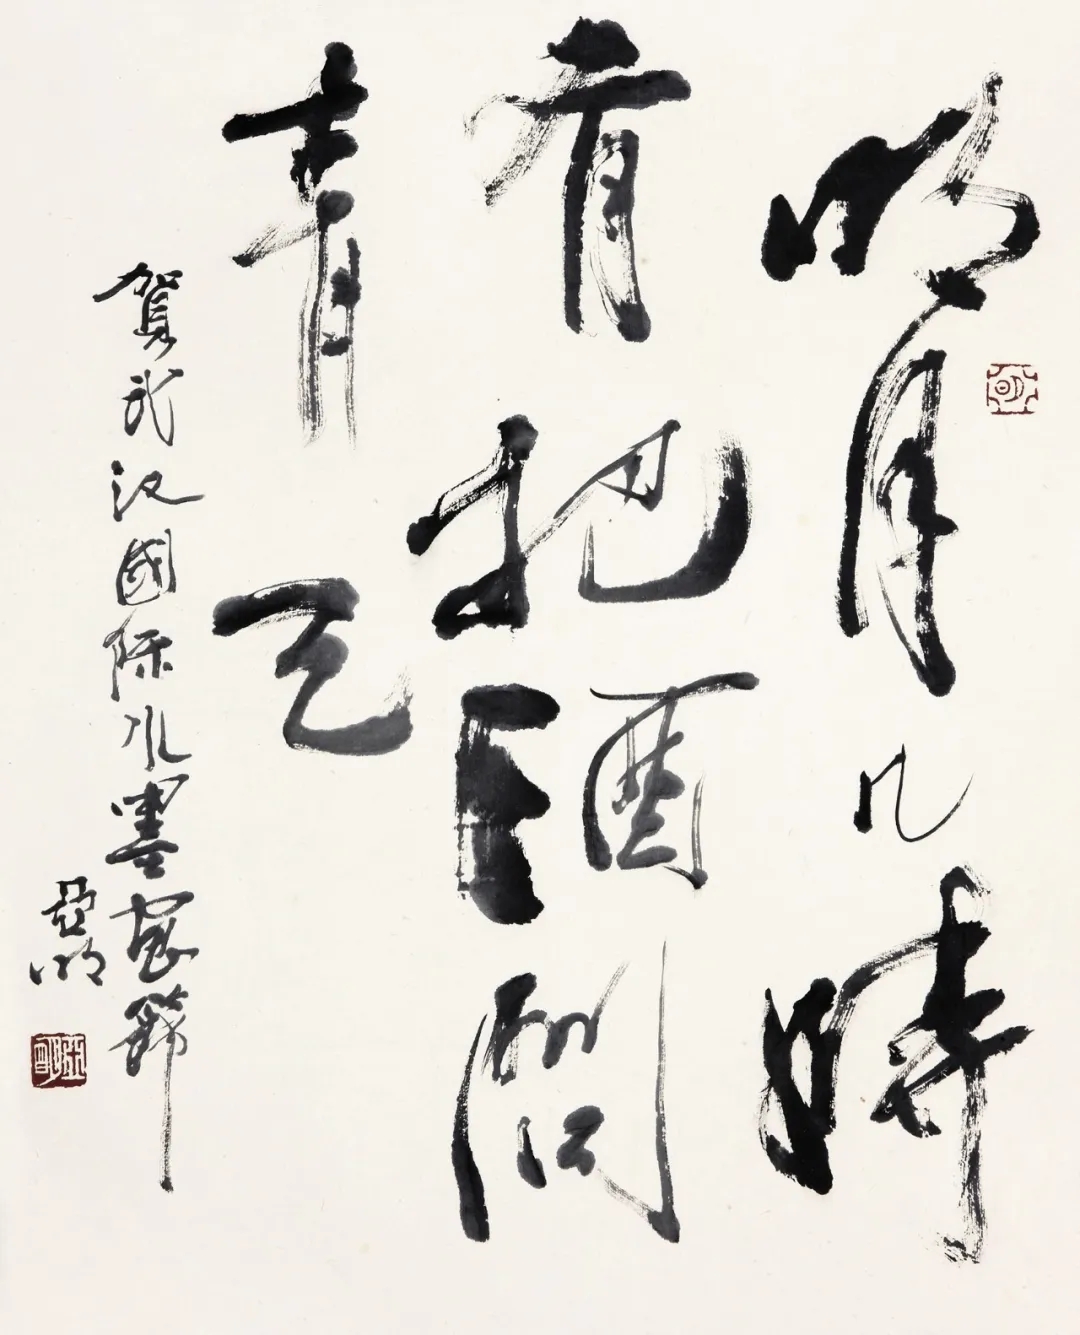 明月几時
有把酒問
青天
賀武汉國际水墨畫節
亞明